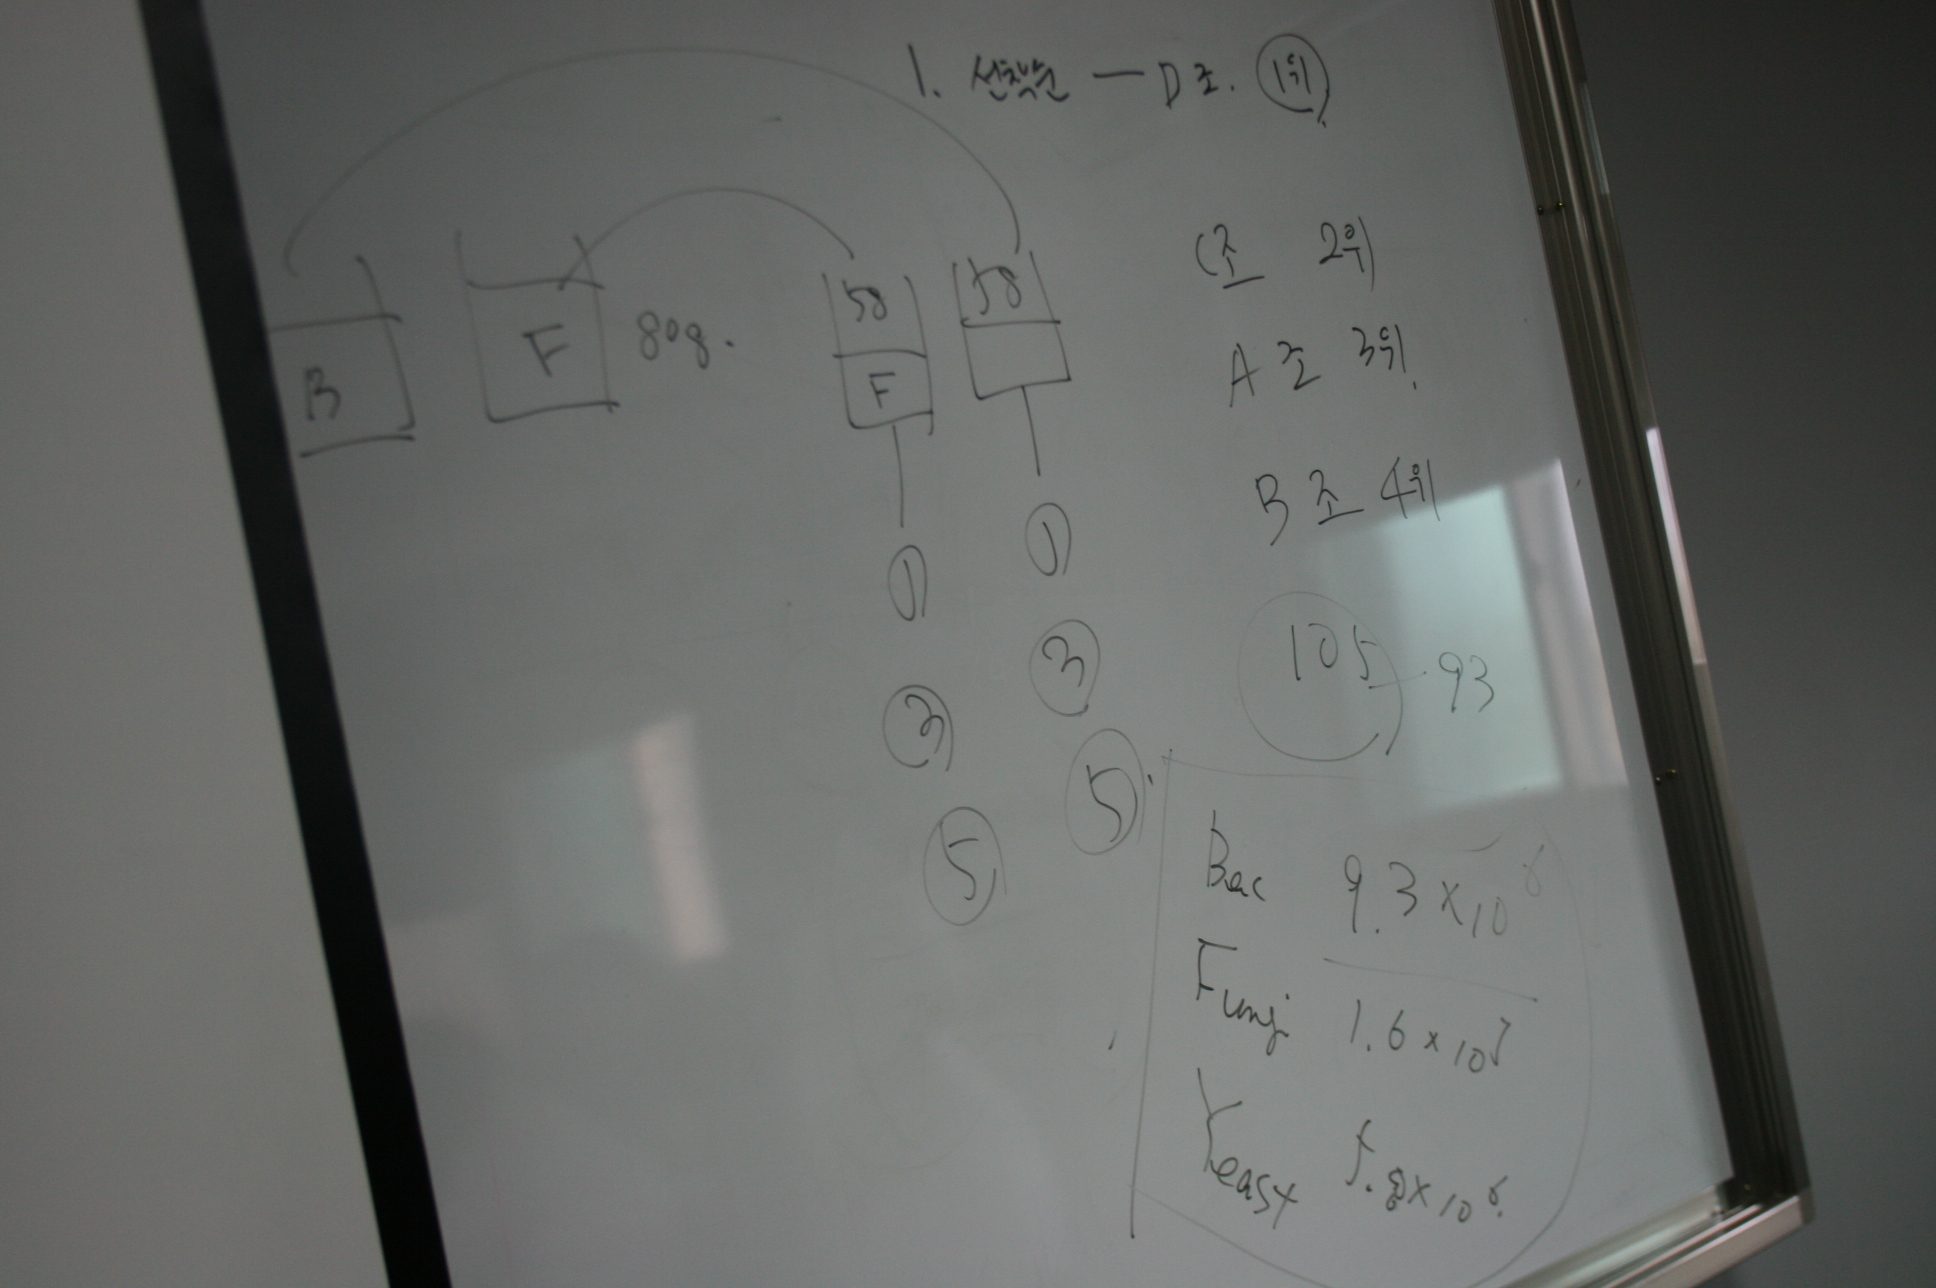 1. 선착순 — D조. 1위
C조 2위
A조 3위.
B조 4위
B
F 80g.
58
F
58
1
3
5
1
3
5
105 93
Bac 9.3 × 10
Fungi 1.6 × 10
Yeast 5.8 × 10